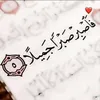 فَٱصْبِرْ صَبْرًا جَمِيلًا ۝٥